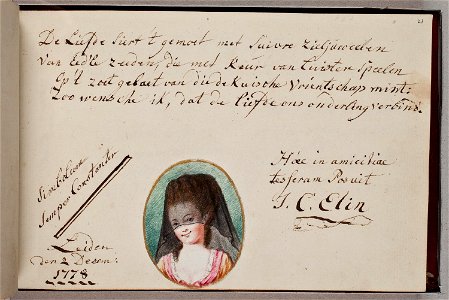 De Liefde siert 't gemoet met suivre zieljuweelen
Van Ed'le zeden, die met keur van luister speelen
Op 't zoet gelaet van die de kuische Vrientschap mint:
Zoo wensche ik, dat de liefde ons onderling verbind'.
Simbolum
Semper Constanter
Leiden
den 2 Decem:
1778
Haec in amicitiae
tesseram Posuit
J. C. Elin